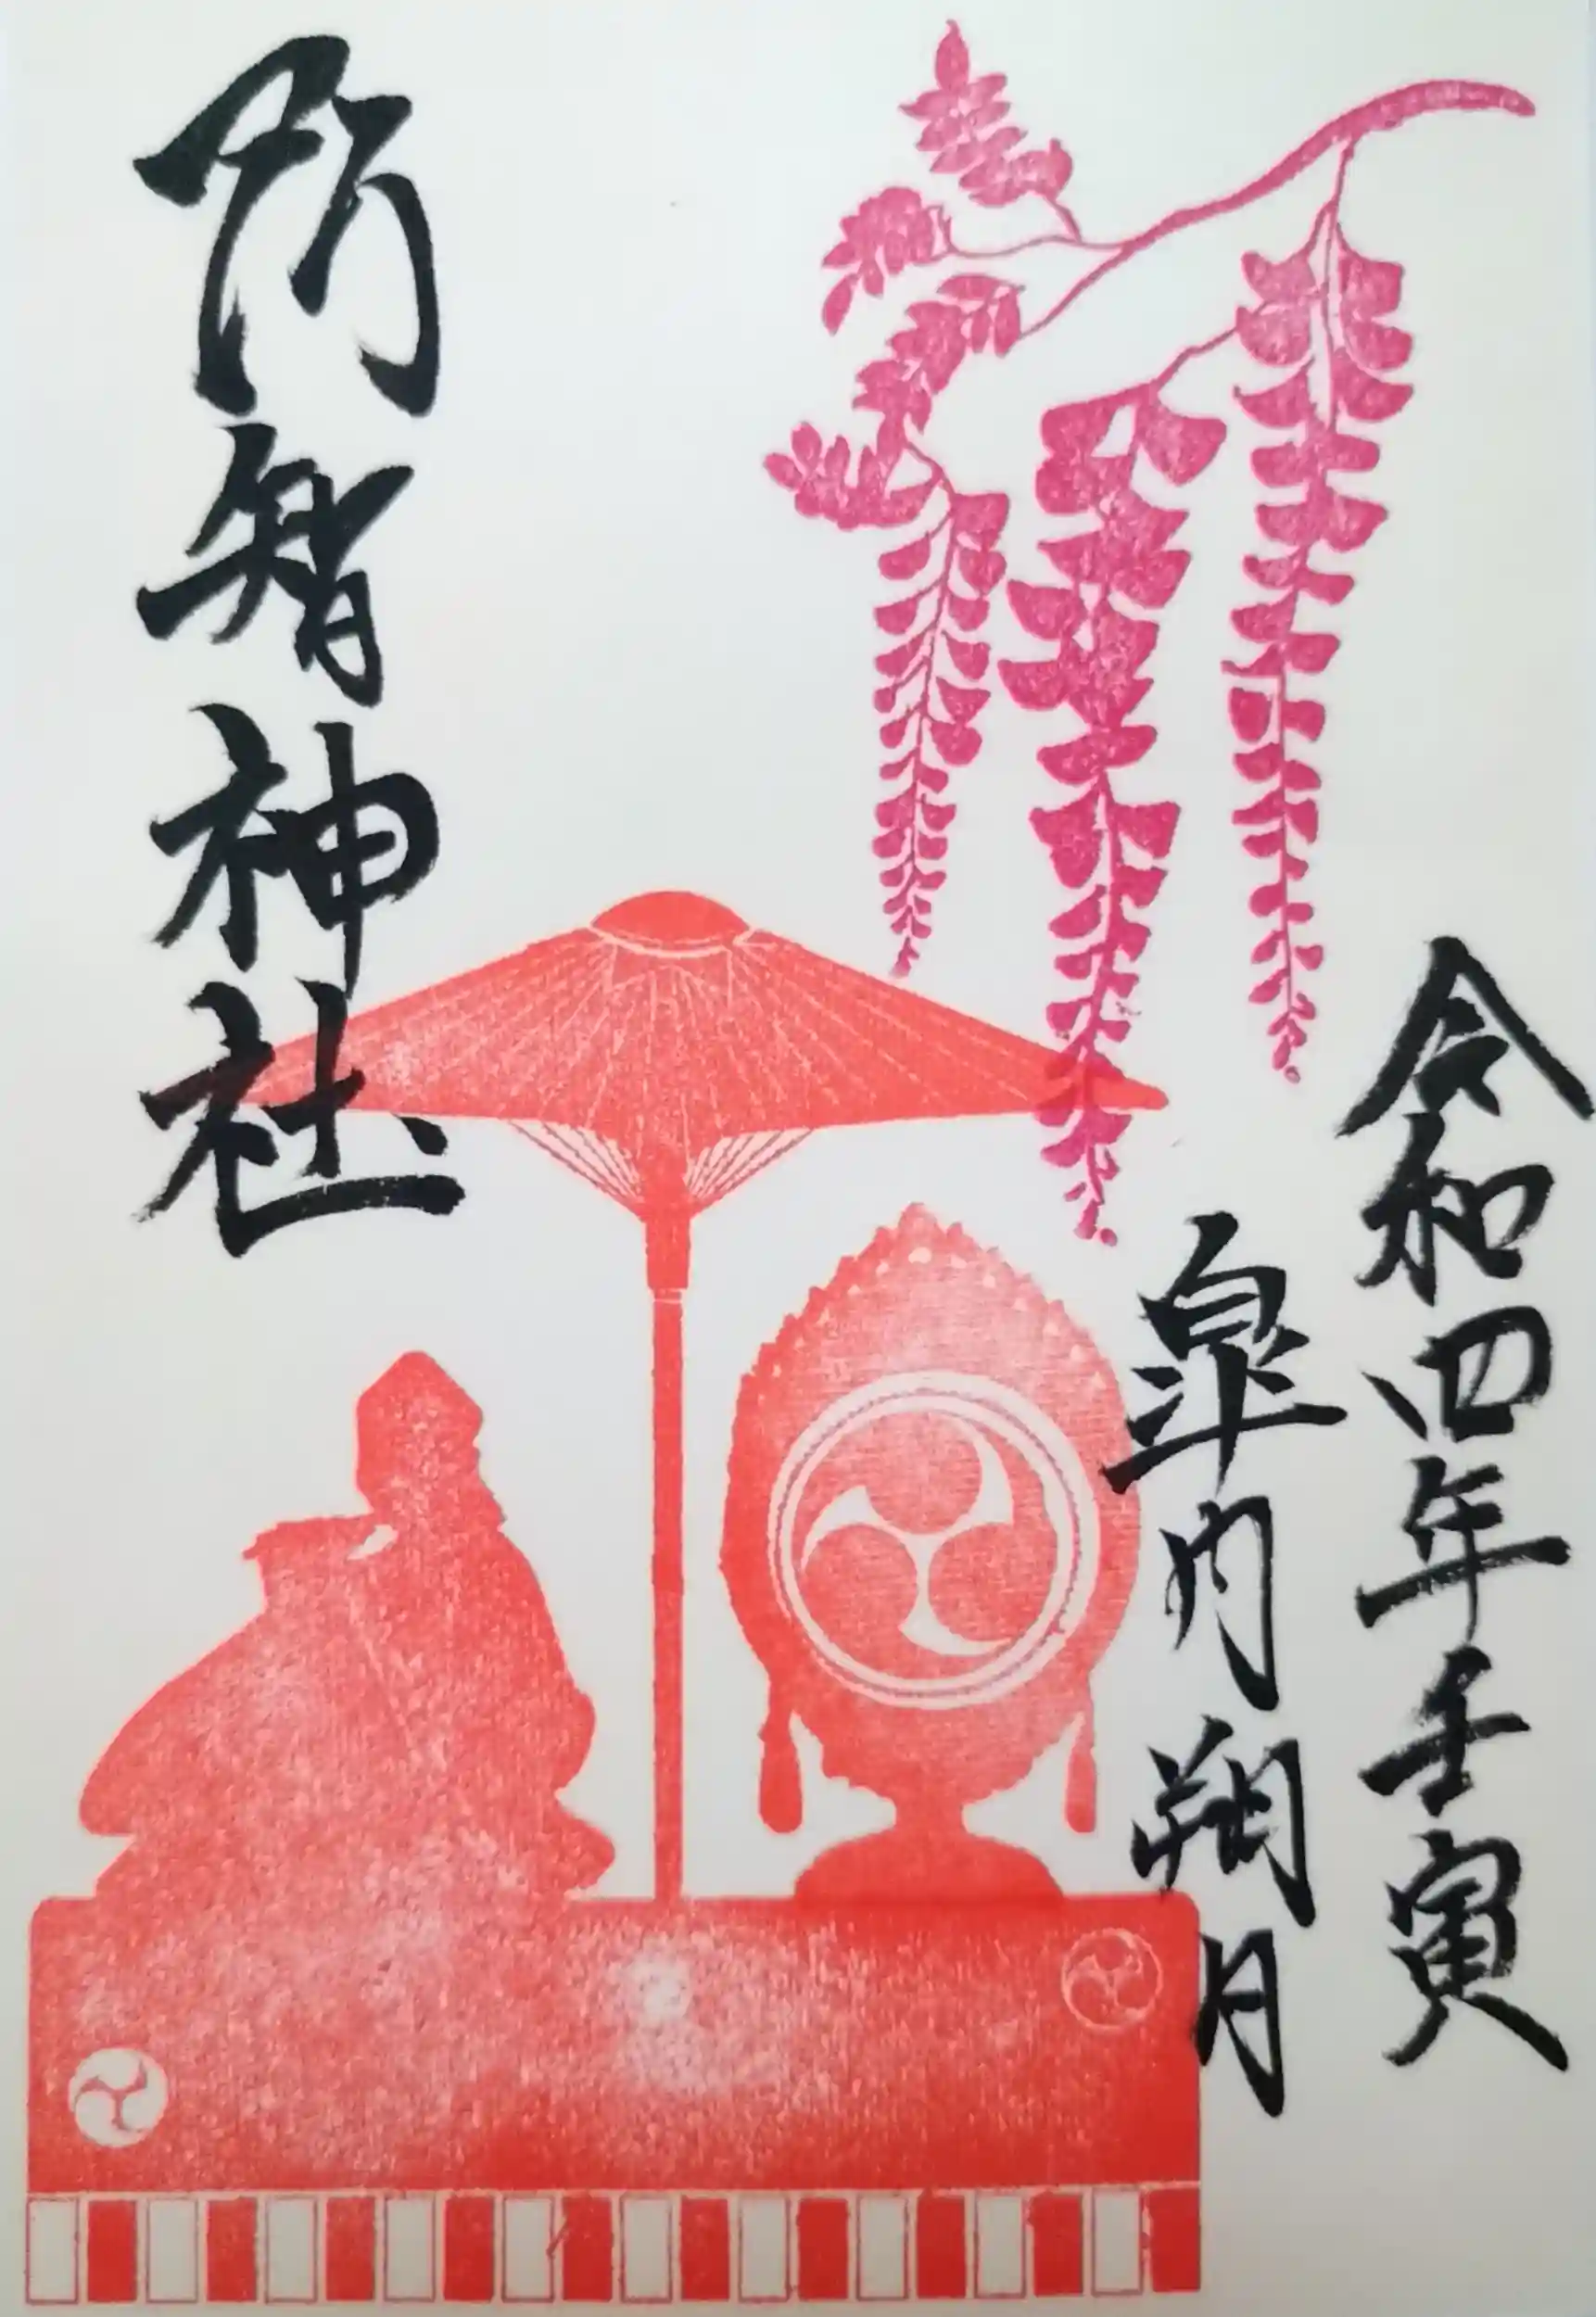 令和四年壬寅
皐月朔日
阿智神社